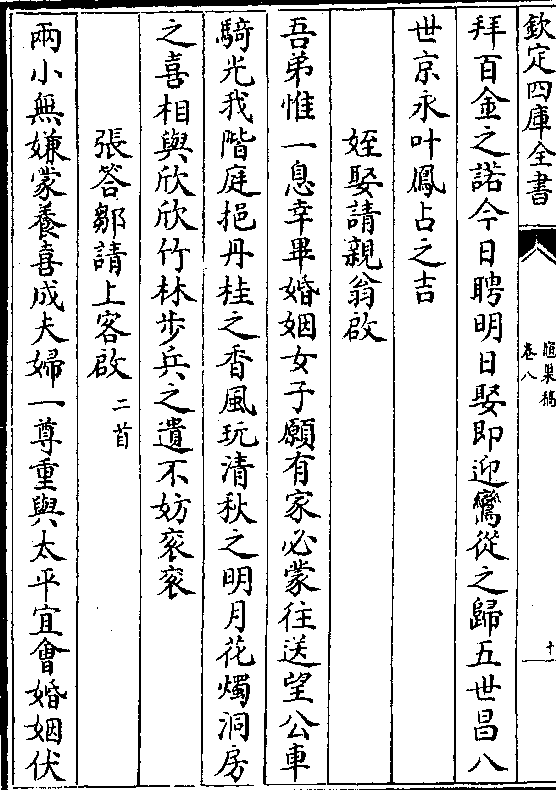 欽定四庫全書
巢稿
卷八
十
拜百金之諾今日聘明日娶即迎鸞從之歸五世昌八
世京永叶鳳占之吉
姪娶請親翁啟
吾弟惟一息幸畢婚姻女子願有家必蒙往送望公車
騎光我階庭挹丹桂之香風玩清秋之明月花燭洞房
之喜相與欣欣竹林步兵之遺不妨衮衮
張答鄒請上客啟二首
兩小無嫌蒙養喜成夫婦一尊重與太平宜會婚姻伏